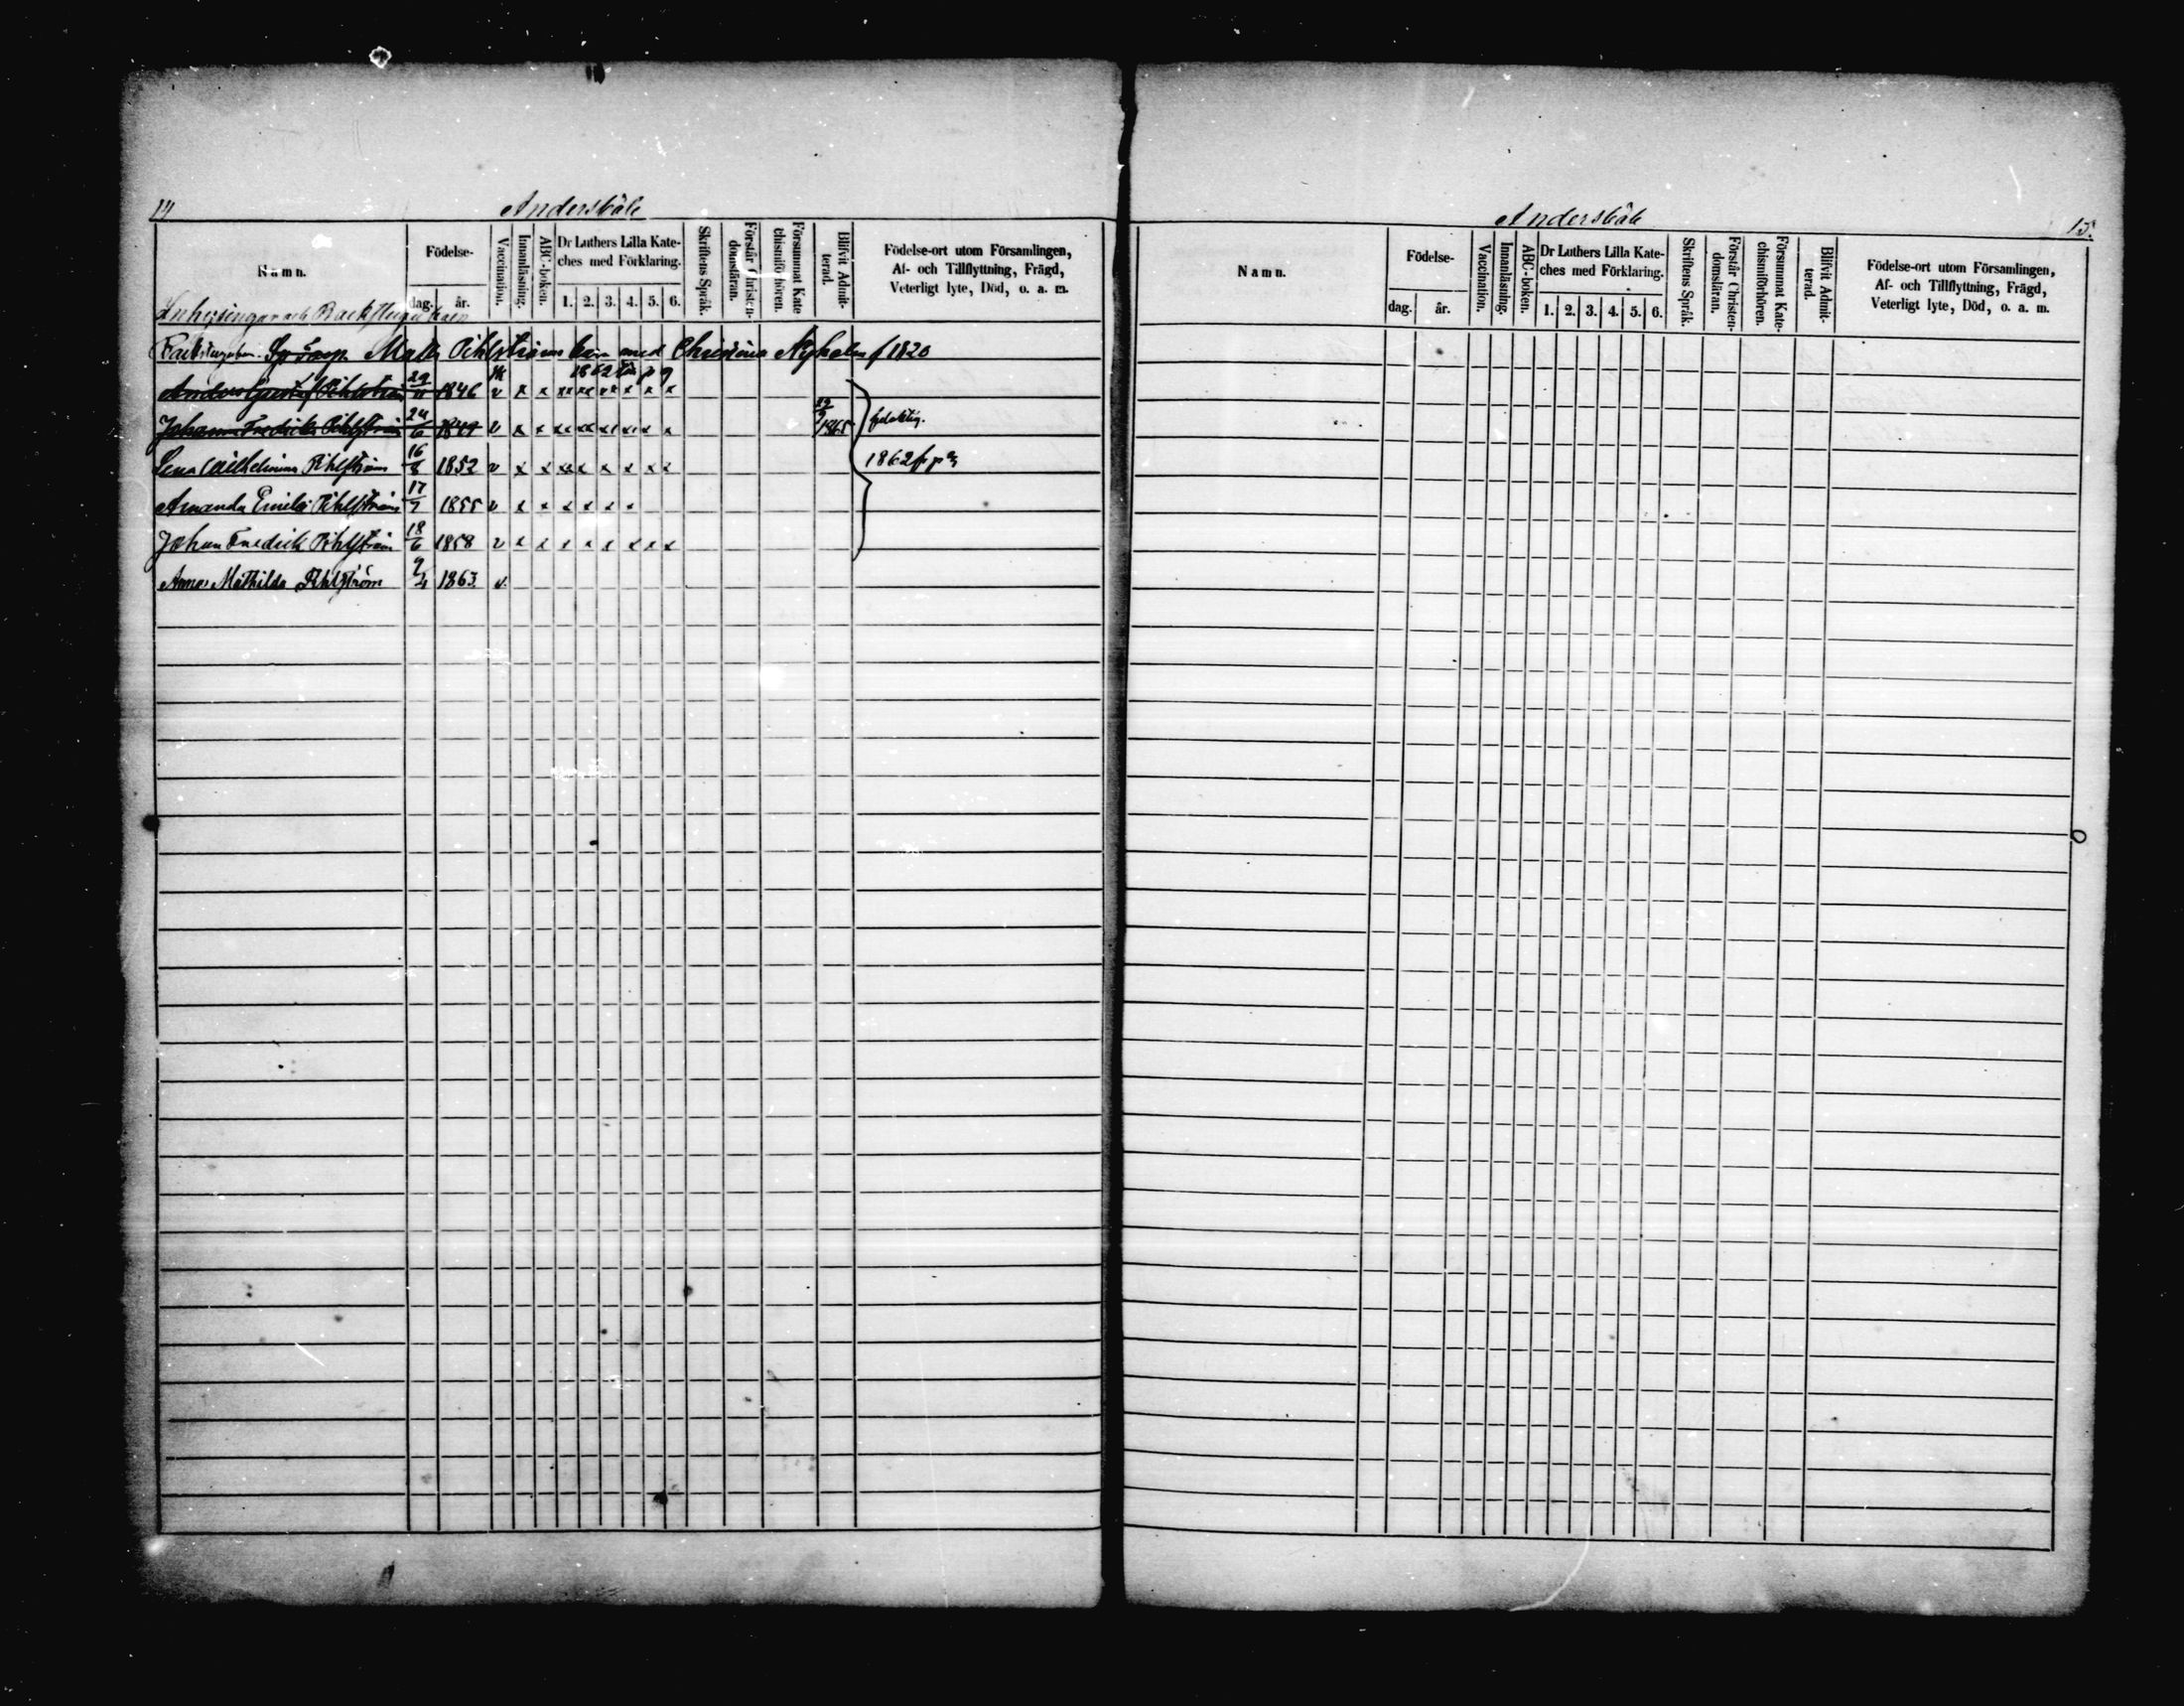 14
Andersböle
Namn.
Födelse-
dag.
år.
Vaccination.
Innanläsning.
ABC-boken.
Dr Luthers Lilla Kate-
ches med Förklaring.
1. 2. 3. 4. 5. 6.
Skriftens Språk.
Förstår Christen-
domsläran.
Försummat Kate
chismiförhören.
Blifvit Admit-
terad.
Födelse-ort utom Församlingen,
Af- och Tillflyttning, Frägd,
Veterligt lyte, Död, o. a. m.
Inhysingar och Backstugu
Matts Pihlströms barn med Christina Nyholm f 1820
1862
Anders Gustaf Pihlström 29/11 1846 v x x xx xx xx x x x
Johanna Fredrika Pihlström 24/6 1849 v x x xx xx xx xx x x 1865
Lena Wilhelmina Pihlström 16/8 1852 v x x xx x x x x x 1862
Amanda Emilia Pihlström 17/7 1855 v x x x x x x
Johan Fredrik Pihlström 18/6 1858 v x x x x x x x x
Anna Mathilda Pihlström 9/4 1863. v.
Andersböle
15.
Namn.
Födelse-
dag.
år.
Vaccination.
Innanläsning.
ABC-boken.
Dr Luthers Lilla Kate-
ches med Förklaring.
1. 2. 3. 4. 5. 6.
Skriftens Språk.
Förstår Christen-
domsläran.
Försummat Kate-
chismiförhören.
Blifvit Admit-
terad.
Födelse-ort utom Församlingen,
Af- och Tillflyttning, Frägd,
Veterligt lyte, Död, o. a. m.